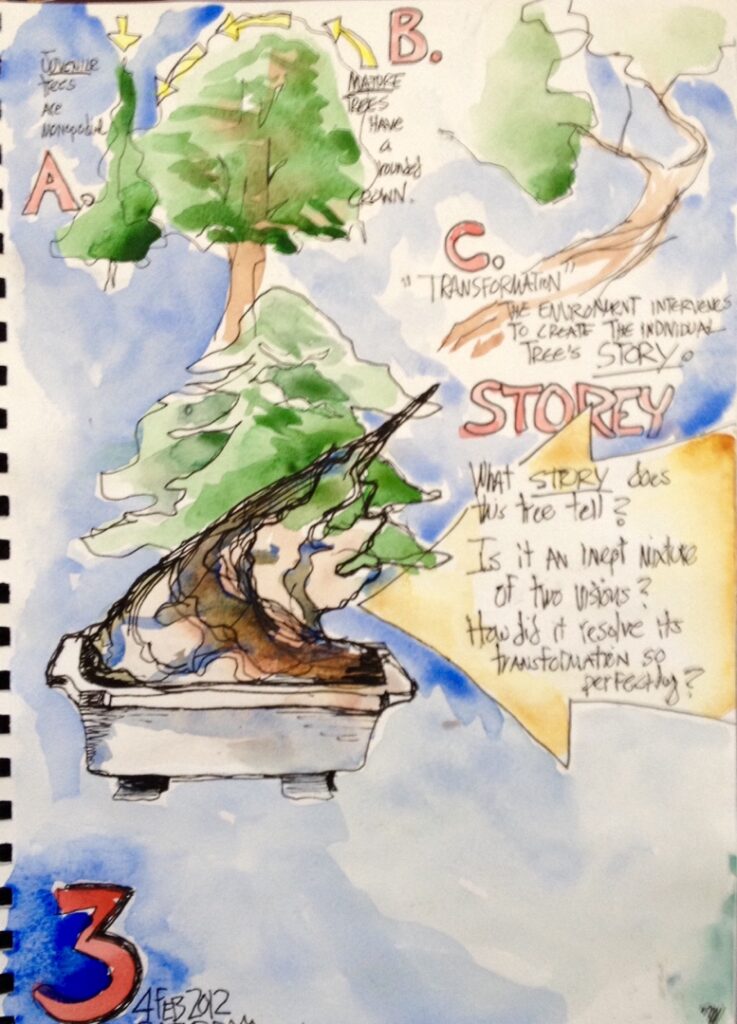 A.
JUVENILE
TREES
ARE
MONOPODIAL
B.
MATURE
TREES
HAVE
a
rounded
CROWN.
C.
"TRANSFORMATION"
THE ENVIRONMENT INTERVENES
TO CREATE THE INDIVIDUAL
TREE'S STORY.
STOREY
What STORY does
this tree tell?
Is it AN inept mixture
of two visions?
How did it resolve its
TRANSFORMATION so
perfectly?
3
4 FEB 2012